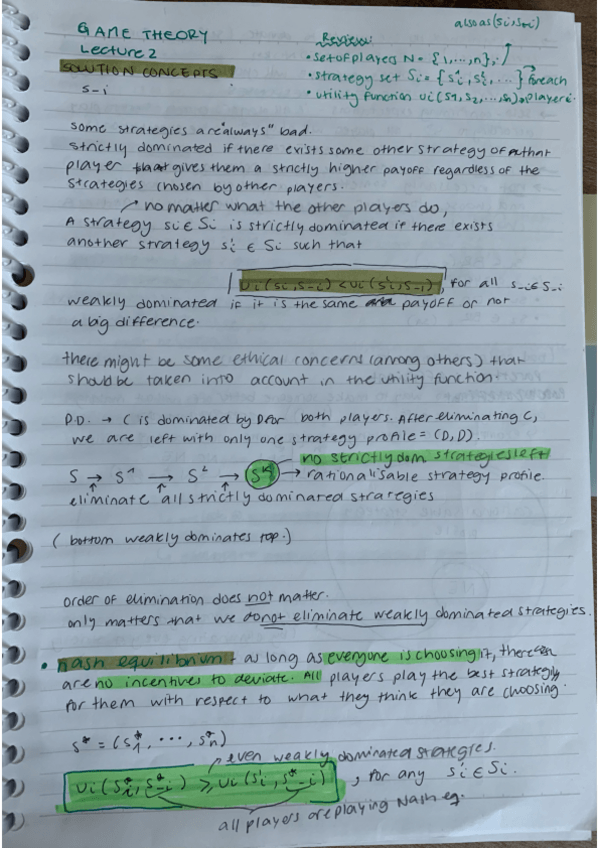 also as (si, s-i)
GAME THEORY
Lecture 2
SOLUTION CONCEPTS
s-i
Review:
• set of players N = {1,...,n},
• strategy set Si = {si¹, si², ...} for each
• utility function ui(s1, s2, ..., sn) player i.
some strategies are "always" bad.
strictly dominated if there exists some other strategy of that
player that gives them a strictly higher payoff regardless of the
strategies chosen by other players.
no matter what the other players do,
A strategy si ∈ Si is strictly dominated if there exists
another strategy si' ∈ Si such that
ui(si, s-i) < ui(si', s-i), for all s-i ∈ S-i
weakly dominated if it is the same payoff or not
a big difference.
there might be some ethical concerns (among others) that
should be taken into account in the utility function.
P.D. → C is dominated by D for both players. After eliminating C,
we are left with only one strategy profile = (D,D).
no strictly dom strategies left
S → S¹ → S² → → rationalisable strategy profile.
eliminate all strictly dominated strategies
( bottom weakly dominates top.)
order of elimination does not matter.
only matters that we do not eliminate weakly dominated strategies.
• nash equilibrium - as long as everyone is choosing it, there
are no incentives to deviate. All players play the best strategy
for them with respect to what they think they are choosing.
s* = (s1*, ..., sn*)
even weakly dominated strategies.
ui(si*, s-i*) ≥ ui(si', s-i*), for any si' ∈ Si.
all players are playing Nash eq.